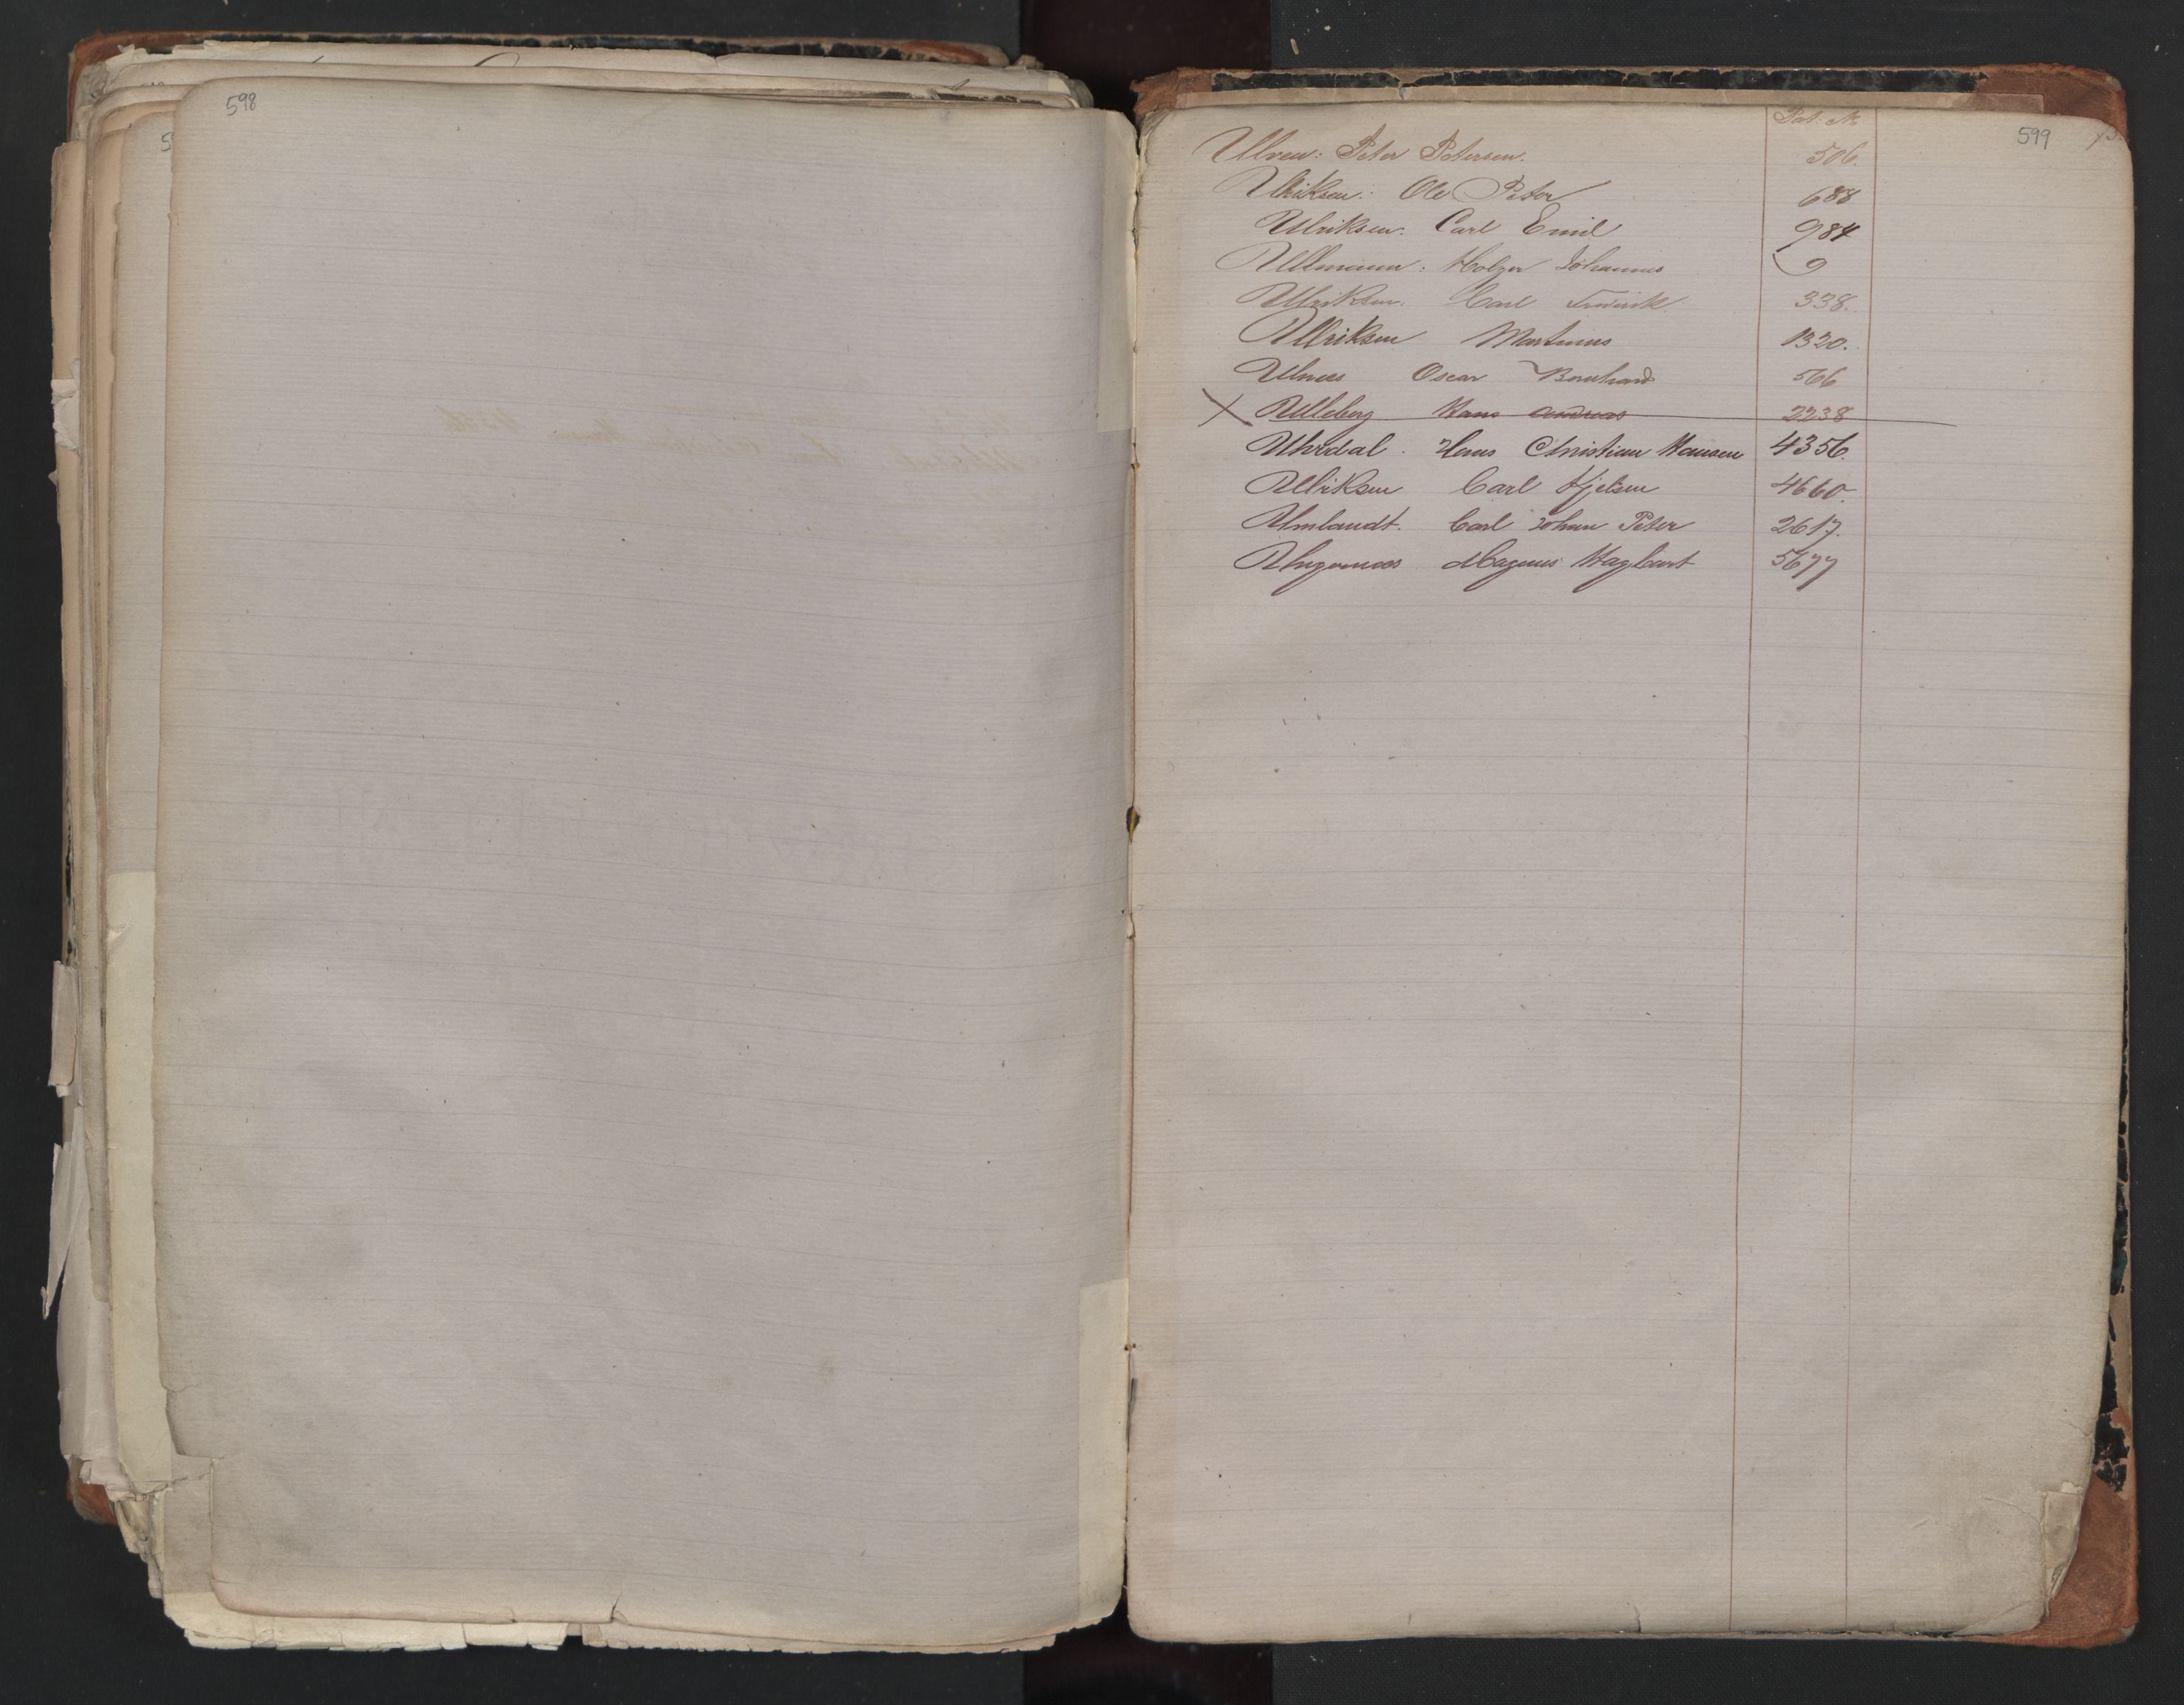 598
599
Pat. No
Ulven: Peter Petersen. 506.
Ulriksen: Ole Peter 688
Ulriksen. Carl Emil 984
Ullmann: Holger Johannes 9
Ulriksen. Carl Fredrik 338.
Ullriksen Martinus 1320.
Ulnes Oscar Bernhard 566
X Ulleberg Hans Andreas 2238
Uhrdal. Hans Christian Hansen 4356.
Ulriksen Carl Kjelsen 4660.
Umlandt. Carl Johan Peter 2617.
Magnus Hagbart 5677